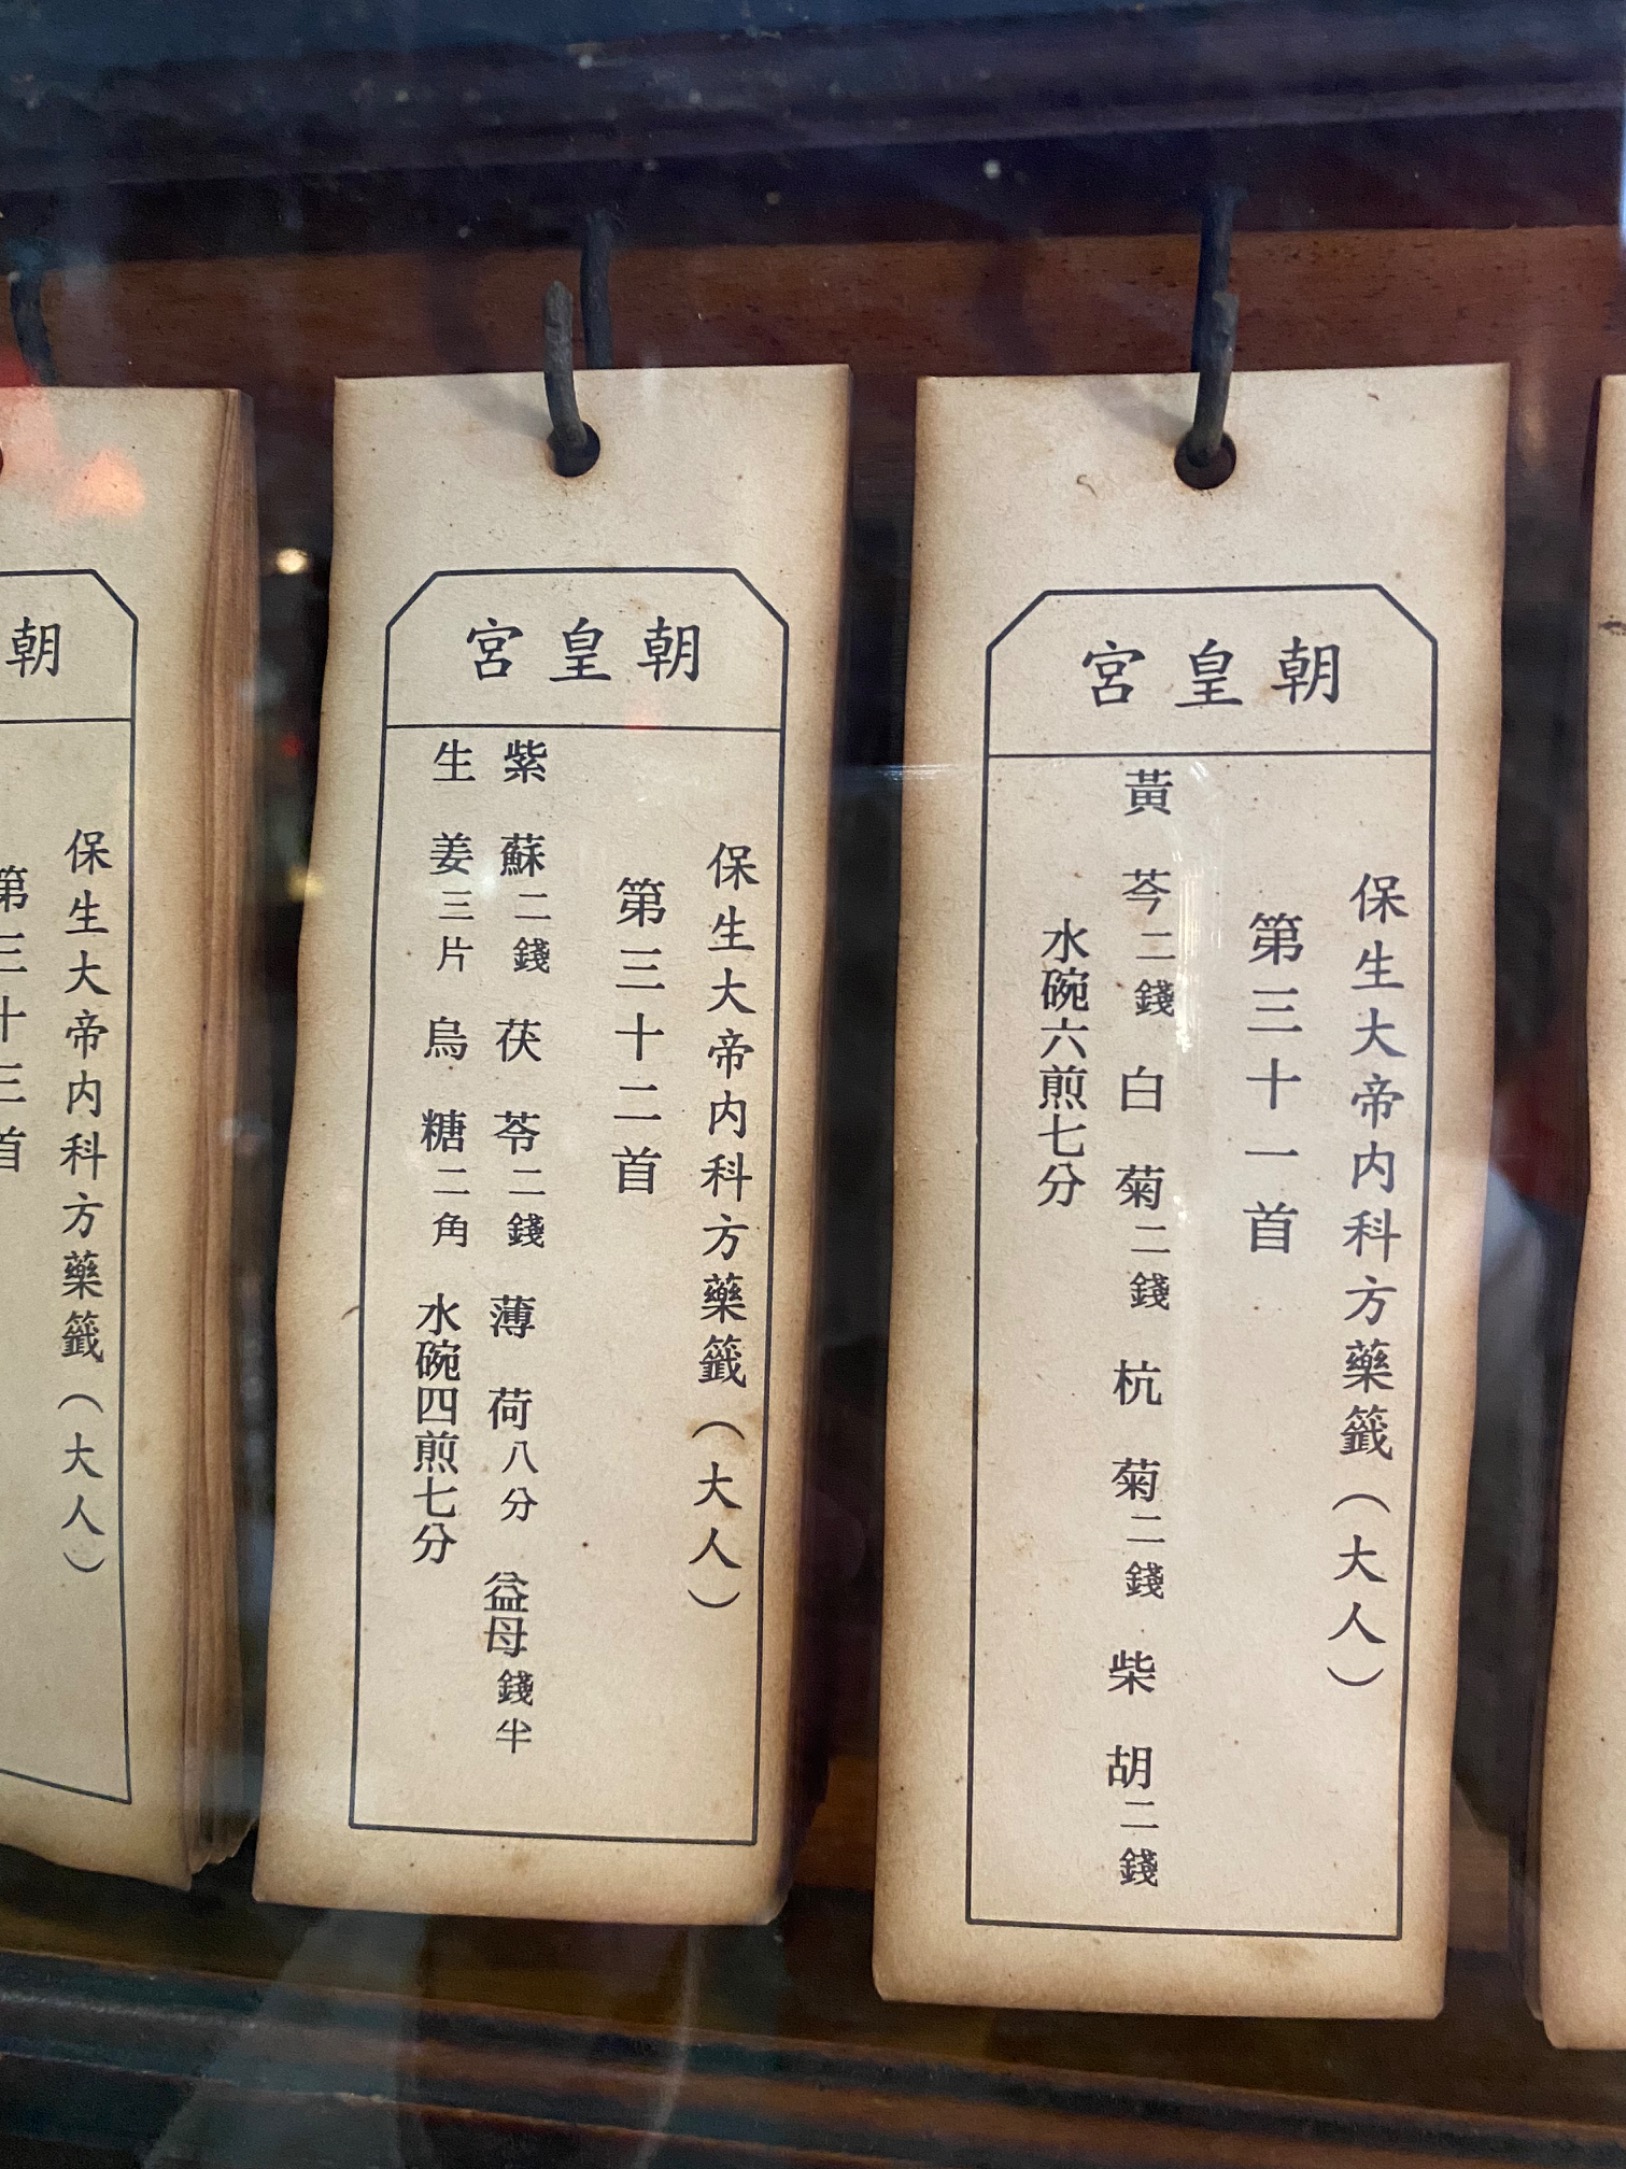 朝皇宮
保生大帝內科方藥籤（大人）
第三十一首
黃芩二錢 白菊二錢 杭菊二錢 柴胡二錢
水碗六煎七分
朝皇宮
保生大帝內科方藥籤（大人）
第三十二首
紫蘇二錢 茯苓二錢 薄荷八分 益母錢半
生姜三片 烏糖二角 水碗四煎七分
朝
保生大帝內科方藥籤（大人）
第三十三首